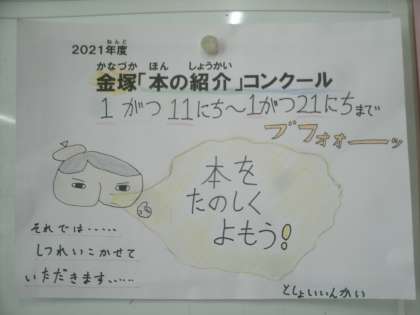 ねんど
2021年度
かなづか ほん しょうかい
金塚「本の紹介」コンクール
1がつ11にち～1がつ21にちまで
ブフォォーーッ
本を
たのしく
よもう!
それでは……
しつれいこかせて
いただきます……
としょいいんかい